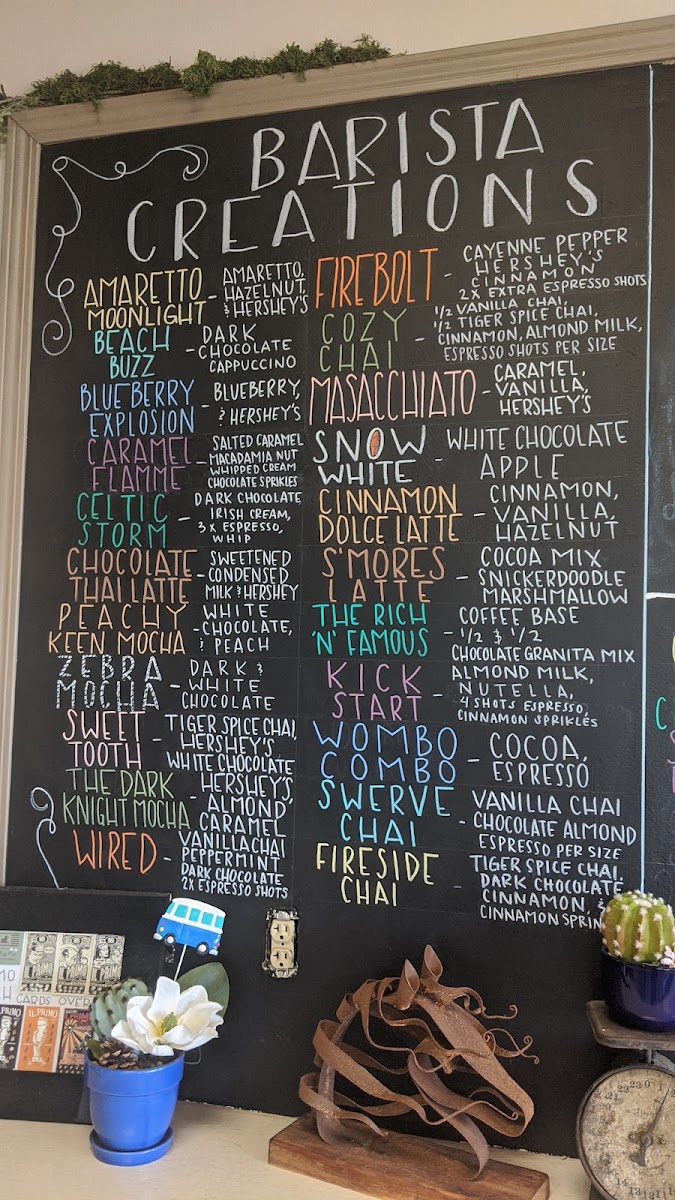 BARISTA
CREATIONS
AMARETTO
MOONLIGHT
- AMARETTO,
HAZELNUT,
& HERSHEY'S
BEACH
BUZZ
- DARK
CHOCOLATE
CAPPUCCINO
BLUEBERRY
EXPLOSION
- BLUEBERRY,
& HERSHEY'S
CARAMEL
FLAMME
- SALTED CARAMEL
MACADAMIA NUT
WHIPPED CREAM
CHOCOLATE SPRIKLES
CELTIC
STORM
- DARK CHOCOLATE
IRISH CREAM,
3X ESPRESSO,
WHIP
CHOCOLATE
THAI LATTE
- SWEETENED
CONDENSED
MILK & HERSHEY
PEACHY
KEEN MOCHA
- WHITE
CHOCOLATE,
& PEACH
ZEBRA
MOCHA
- DARK &
WHITE
CHOCOLATE
SWEET
TOOTH
- TIGER SPICE CHAI,
HERSHEY'S
WHITE CHOCOLATE
THE DARK
KNIGHT MOCHA
- HERSHEY'S,
ALMOND
CARAMEL
WIRED
- VANILLA CHAI
PEPPERMINT
DARK CHOCOLATE
2X ESPRESSO SHOTS
FIREBOLT
- CAYENNE PEPPER
HERSHEY'S
CINNAMON
2X EXTRA ESPRESSO SHOTS
COZY
CHAI
- 1/2 VANILLA CHAI,
1/2 TIGER SPICE CHAI,
CINNAMON, ALMOND MILK,
ESPRESSO SHOTS PER SIZE
MASACCHIATO
- CARAMEL,
VANILLA,
HERSHEY'S
SNOW
WHITE
- WHITE CHOCOLATE
APPLE
CINNAMON
DOLCE LATTE
- CINNAMON,
VANILLA,
HAZELNUT
S'MORES
LATTE
- COCOA MIX
SNICKERDOODLE
MARSHMALLOW
THE RICH
'N' FAMOUS
- COFFEE BASE
1/2 & 1/2
CHOCOLATE GRANITA MIX
KICK
START
- ALMOND MILK,
NUTELLA,
4 SHOTS ESPRESSO,
CINNAMON SPRIKLES
WOMBO
COMBO
- COCOA,
ESPRESSO
SWERVE
CHAI
- VANILLA CHAI
CHOCOLATE ALMOND
ESPRESSO PER SIZE
FIRESIDE
CHAI
- TIGER SPICE CHAI,
DARK CHOCOLATE
CINNAMON, &
CINNAMON SPRIN
CARDS OVER
IL PRIMO
PRIMO
22 23 0 1
21
20
19
18
17
16
15
14